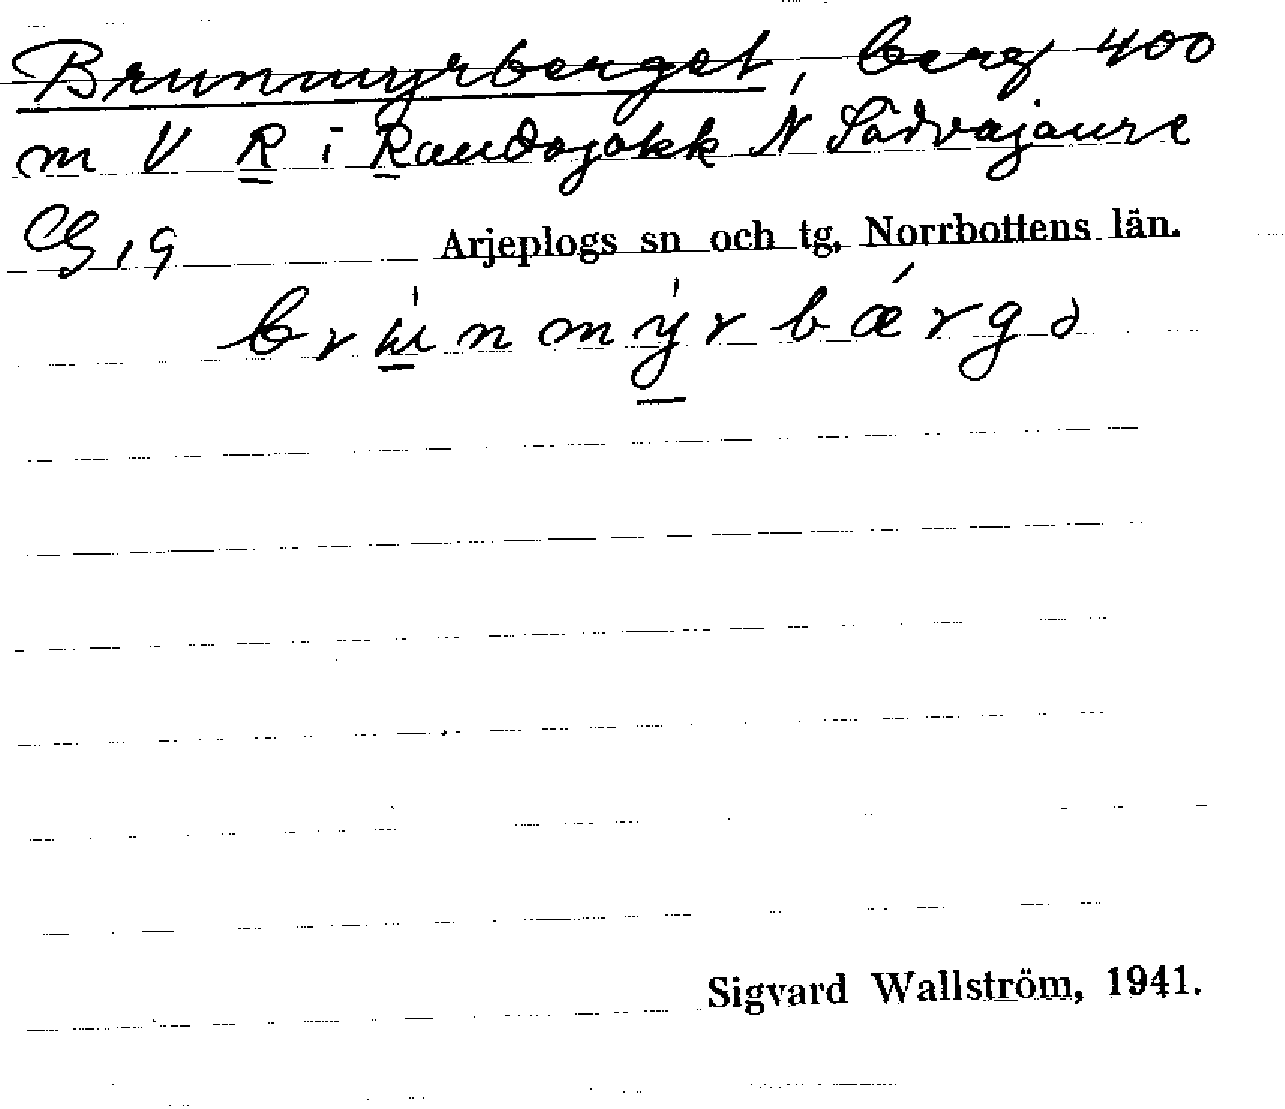 Brunmyrberget, berg 400
m V R i Raudojokk N Södvajaure
CG, 9
Arjeplogs sn och tg, Norrbottens län.
brùnmỳrbǽrgə
Sigvard Wallström, 1941.